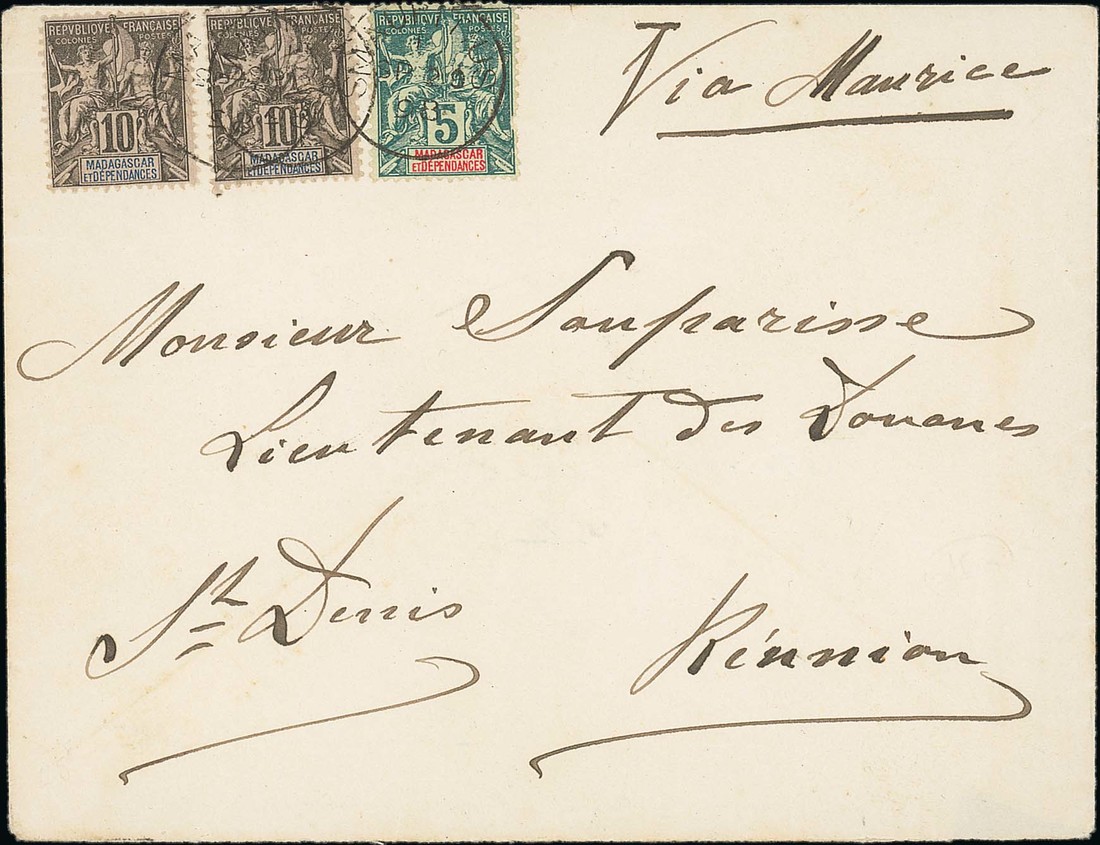 RÉPUBLIQUE FRANÇAISE
COLONIES POSTES
10
MADAGASCAR
ET DÉPENDANCES
RÉPUBLIQUE FRANÇAISE
COLONIES POSTES
10
MADAGASCAR
ET DÉPENDANCES
RÉPUBLIQUE FRANÇAISE
COLONIES POSTES
5
MADAGASCAR
ET DÉPENDANCES
98
Via Maurice
Monsieur Souparisse
Lieutenant des Douanes
St Denis
Réunnion